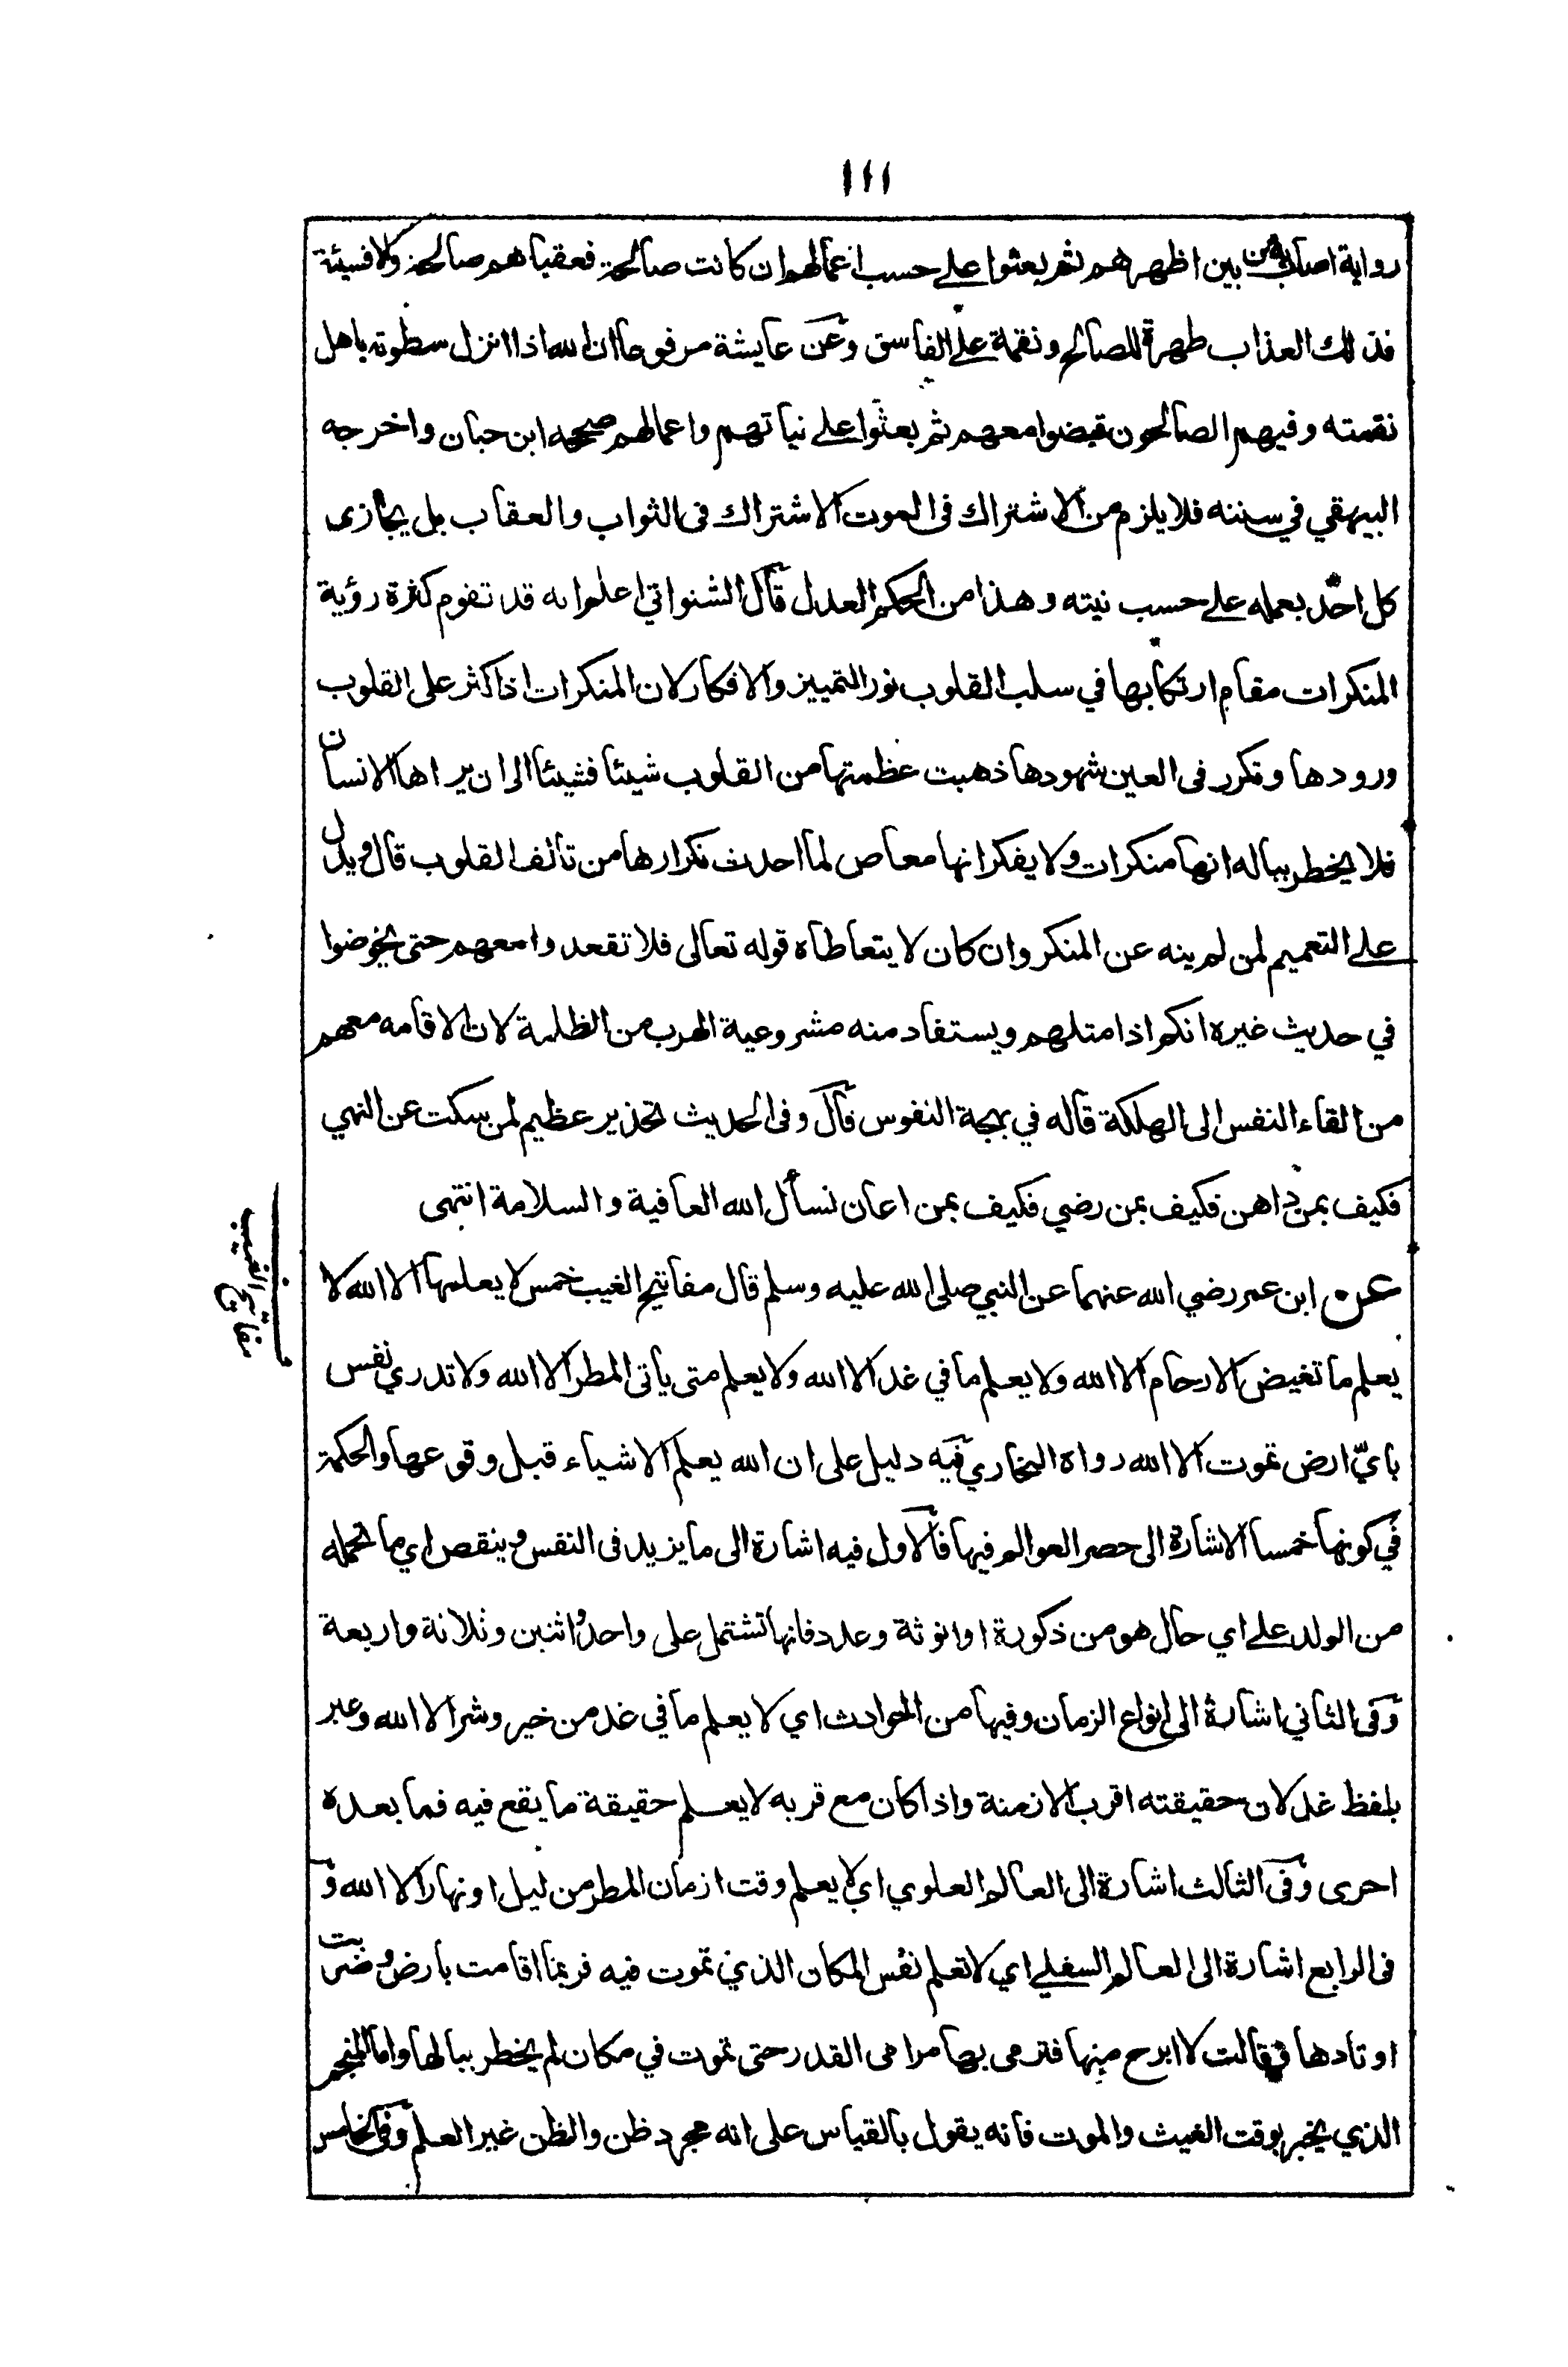 ١١١
رواية اصاب من بين اظهرهم ثم بعثوا على حسب اعمالهم ان كانت صالحة فعقباهم صالحة والا فسيئة
فذلك العذاب طهرة للصالح ونقمة على الفاسق وعن عايشة مرفوعا ان الله اذا انزل سطوته باهل
نقمته وفيهم الصالحون قبضوا معهم ثم بعثوا على نياتهم واعمالهم صححه ابن حبان واخرجه
البيهقي في سننه فلا يلزم من الاشتراك في الموت الاشتراك في الثواب والعقاب بل يجازى
كل احد بعمله على حسب نيته وهذا من الحكم العدل قال الشنواني اعلم انه قد تقوم كثرة رؤية
المنكرات مقام ارتكابها في سلب القلوب نور التمييز والافكار لان المنكرات اذا كثر على القلوب
ورودها وتكرر في العين شهودها ذهبت عظمتها من القلوب شيئا فشيئا الى ان يراها الانسان
فلا يخطر بباله انها منكرات ولا يفكر انها معاص لما احدث تكرارها من تألف القلوب قال ويدل
على التعميم لمن لم ينه عن المنكر وان كان لا يتعاطاه قوله تعالى فلا تقعدوا معهم حتى يخوضوا
في حديث غيره انكم اذا مثلهم ويستفاد منه مشروعية الهرب من الظلمة لان الاقامه معهم
من القاء النفس الى الهلكة قاله في بهجة النفوس قال وفي الحديث تحذير عظيم لمن سكت عن النهي
فكيف بمن داهن فكيف بمن رضي فكيف بمن اعان نسأل الله العافية والسلامة انتهى
عن ابن عمر رضي الله عنهما عن النبي صلى الله عليه وسلم قال مفاتيح الغيب خمس لا يعلمها الا الله لا
مفاتيح الغيب
يعلم ما تغيض الارحام الا الله ولا يعلم ما في غد الا الله ولا يعلم متى يأتي المطر الا الله ولا تدري نفس
بايّ ارض تموت الا الله رواه البخاري فيه دليل على ان الله يعلم الاشياء قبل وقوعها والحكمة
في كونها خمسا الاشارة الى حصر العوالم فيها فالاول فيه اشارة الى ما يزيد في النفس وينقص اي ما تحمله
من الولد على اي حال هو من ذكورة او انوثة وعدد فانها تشتمل على واحد واثنين وثلاثة واربعة
وفي الثاني اشارة الى انواع الزمان وفيها من الحوادث اي لا يعلم ما في غد من خير وشر الا الله وعبر
بلفظ غد لان حقيقته اقرب الازمنة واذا كان مع قربه لا يعلم حقيقة ما يقع فيه فما بعده
احرى وفي الثالث اشارة الى العالم العلوي اي لا يعلم وقت ازمان المطر من ليل او نهار الا الله و
في الرابع اشارة الى العالم السفلي اي لا تعلم نفس المكان الذي تموت فيه فربما اقامت بارض وضربت
اوتادها فقالت لا ابرح منها فترمى بها مرامى القدر حتى تموت في مكان لم يخطر ببالها واما المنجم
الذي يخبر بوقت الغيث والموت فانه يقول بالقياس على انه مجرد ظن والظن غير العلم وفي الخامس